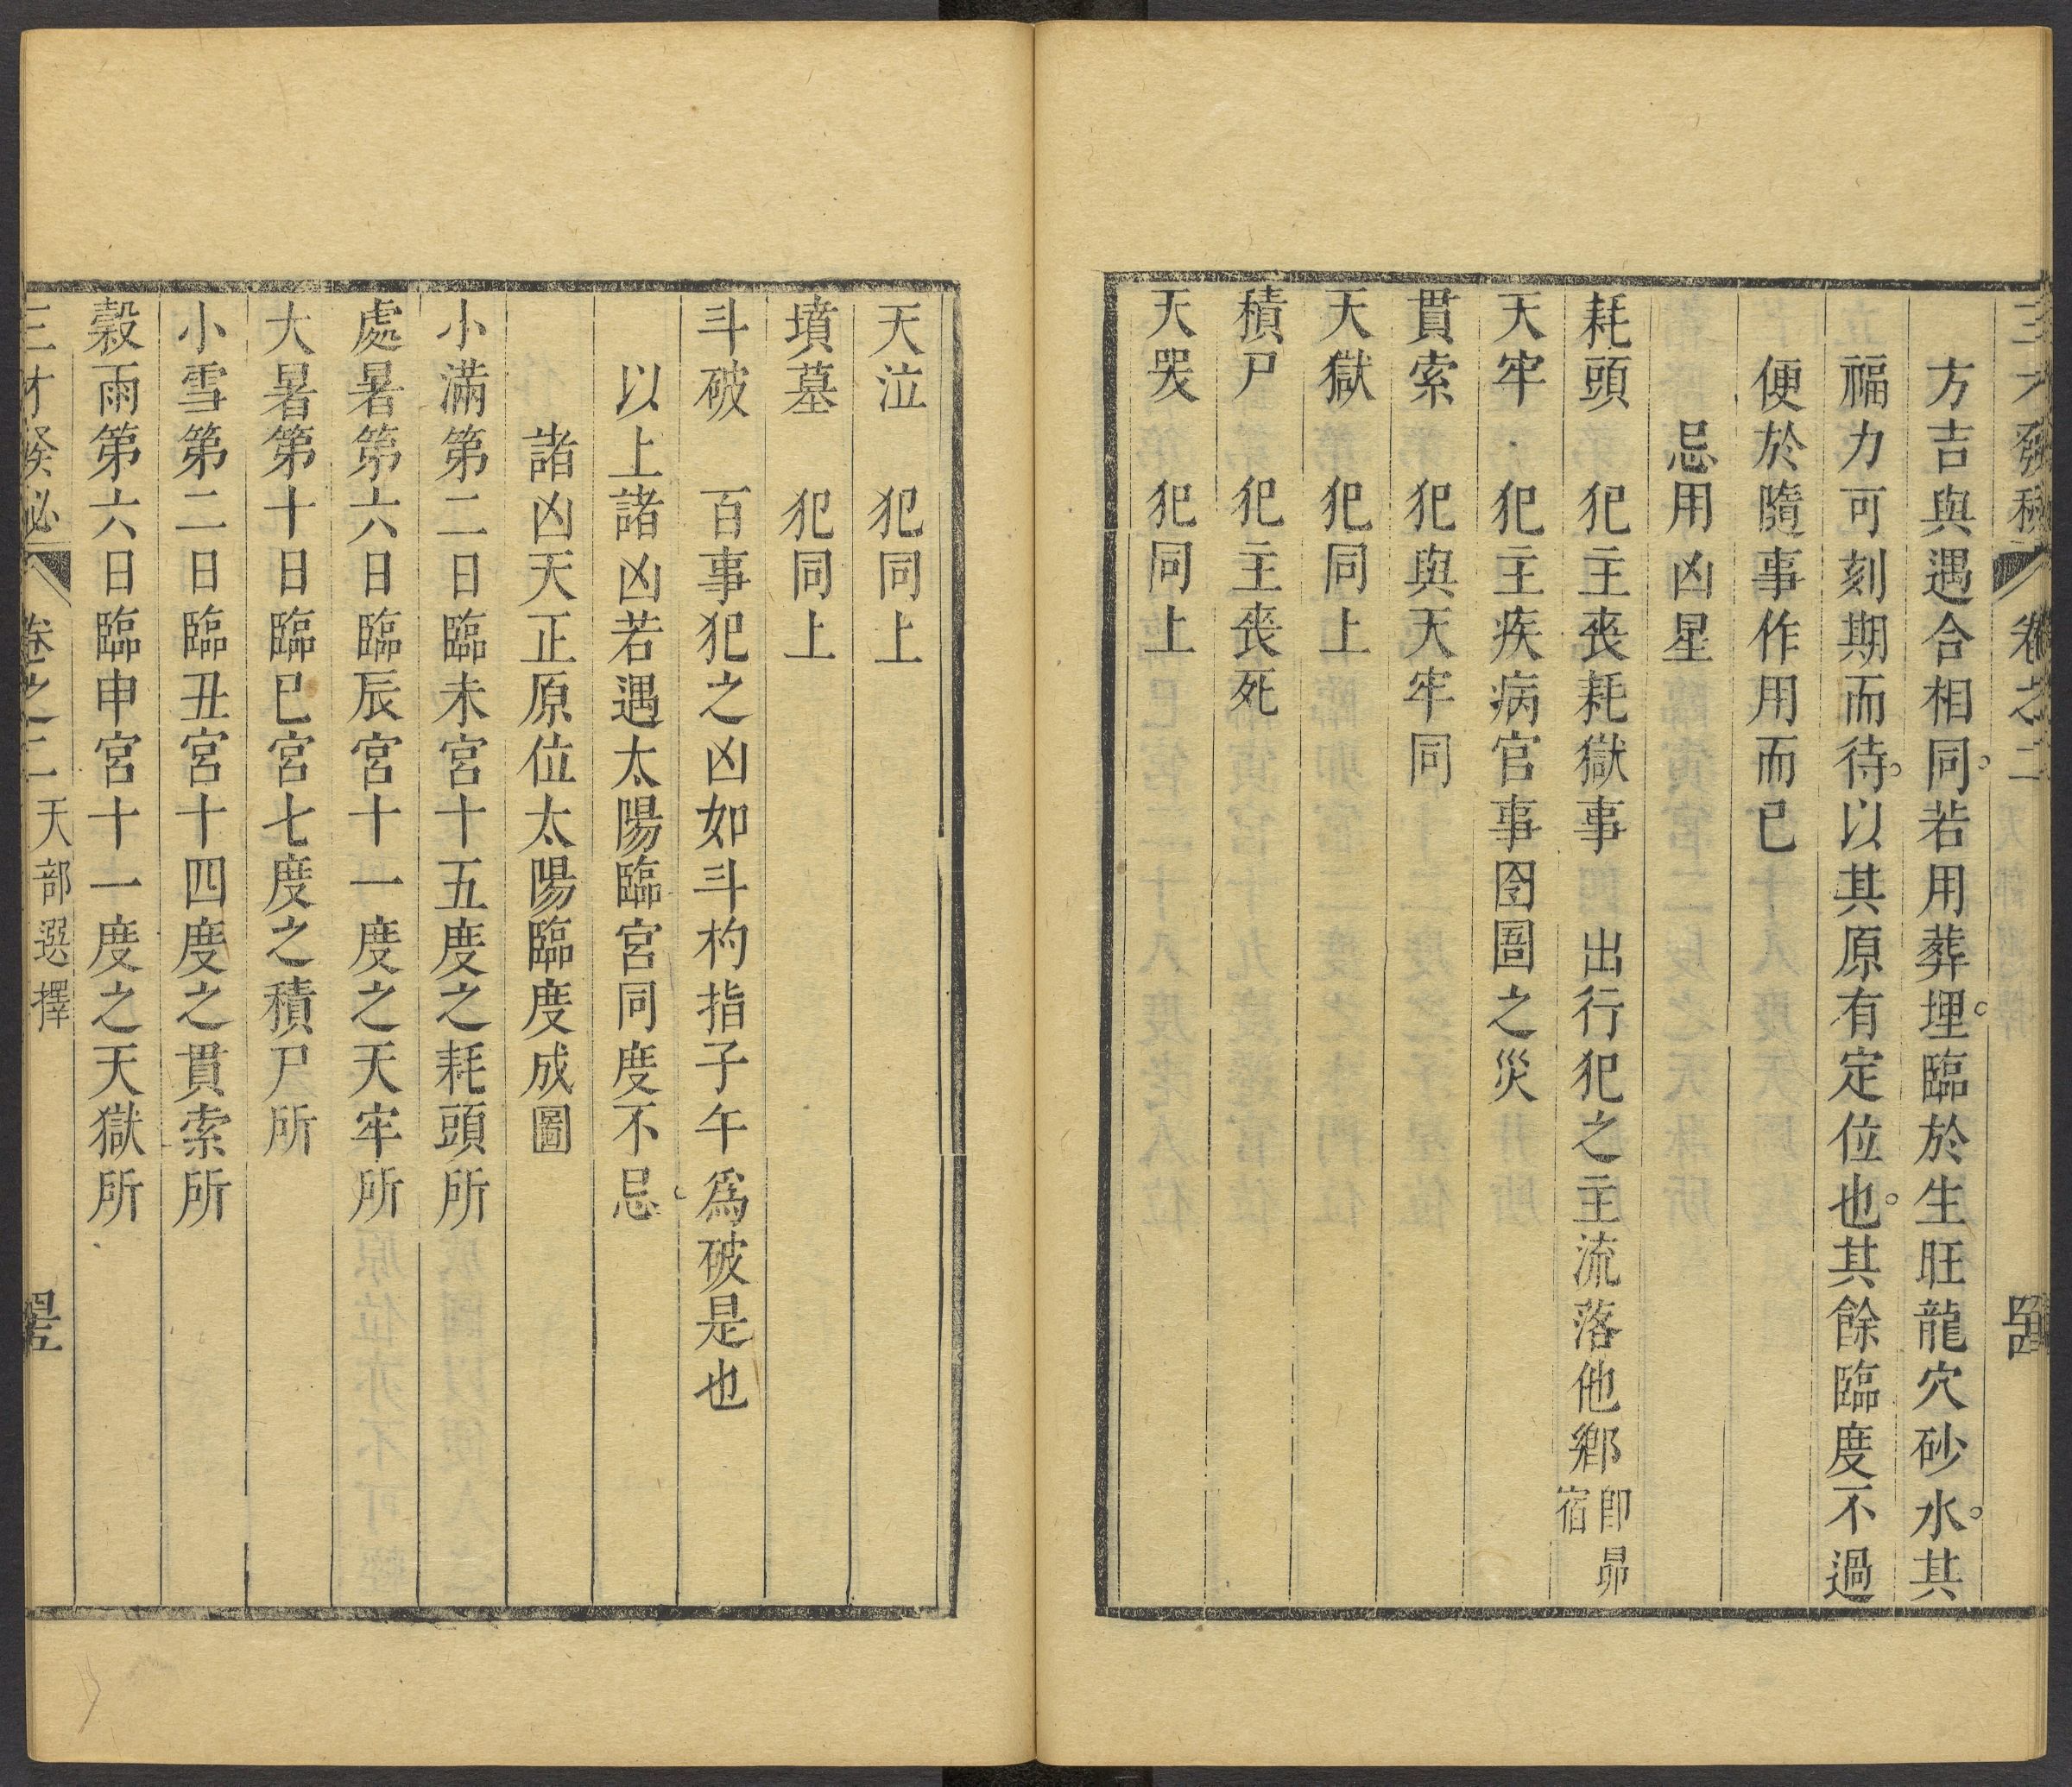 方吉與遇合相同。若用葬埋。臨於生旺龍穴砂水。其
福力可刻期而待。以其原有定位也。其餘臨度不過
便於隨事作用而已
忌用凶星
耗頭 犯主喪耗獄事 出行犯之主流落他鄉即昴宿
天牢 犯主疾病官事囹圄之災
貫索 犯與天牢同
天獄 犯同上
積尸 犯主喪死
天哭 犯同上
天泣 犯同上
墳墓 犯同上
斗破 百事犯之凶如斗杓指子午為破是也
以上諸凶若遇太陽臨宮同度不忌。
諸凶天正原位太陽臨度成圖
小滿第二日臨未宮十五度之耗頭所
處暑第六日臨辰宮十一度之天牢所
大暑第十日臨巳宮七度之積尸所
小雪第二日臨丑宮十四度之貫索所
穀雨第六日臨申宮十一度之天獄所
三才發秘 卷之二 天部選擇